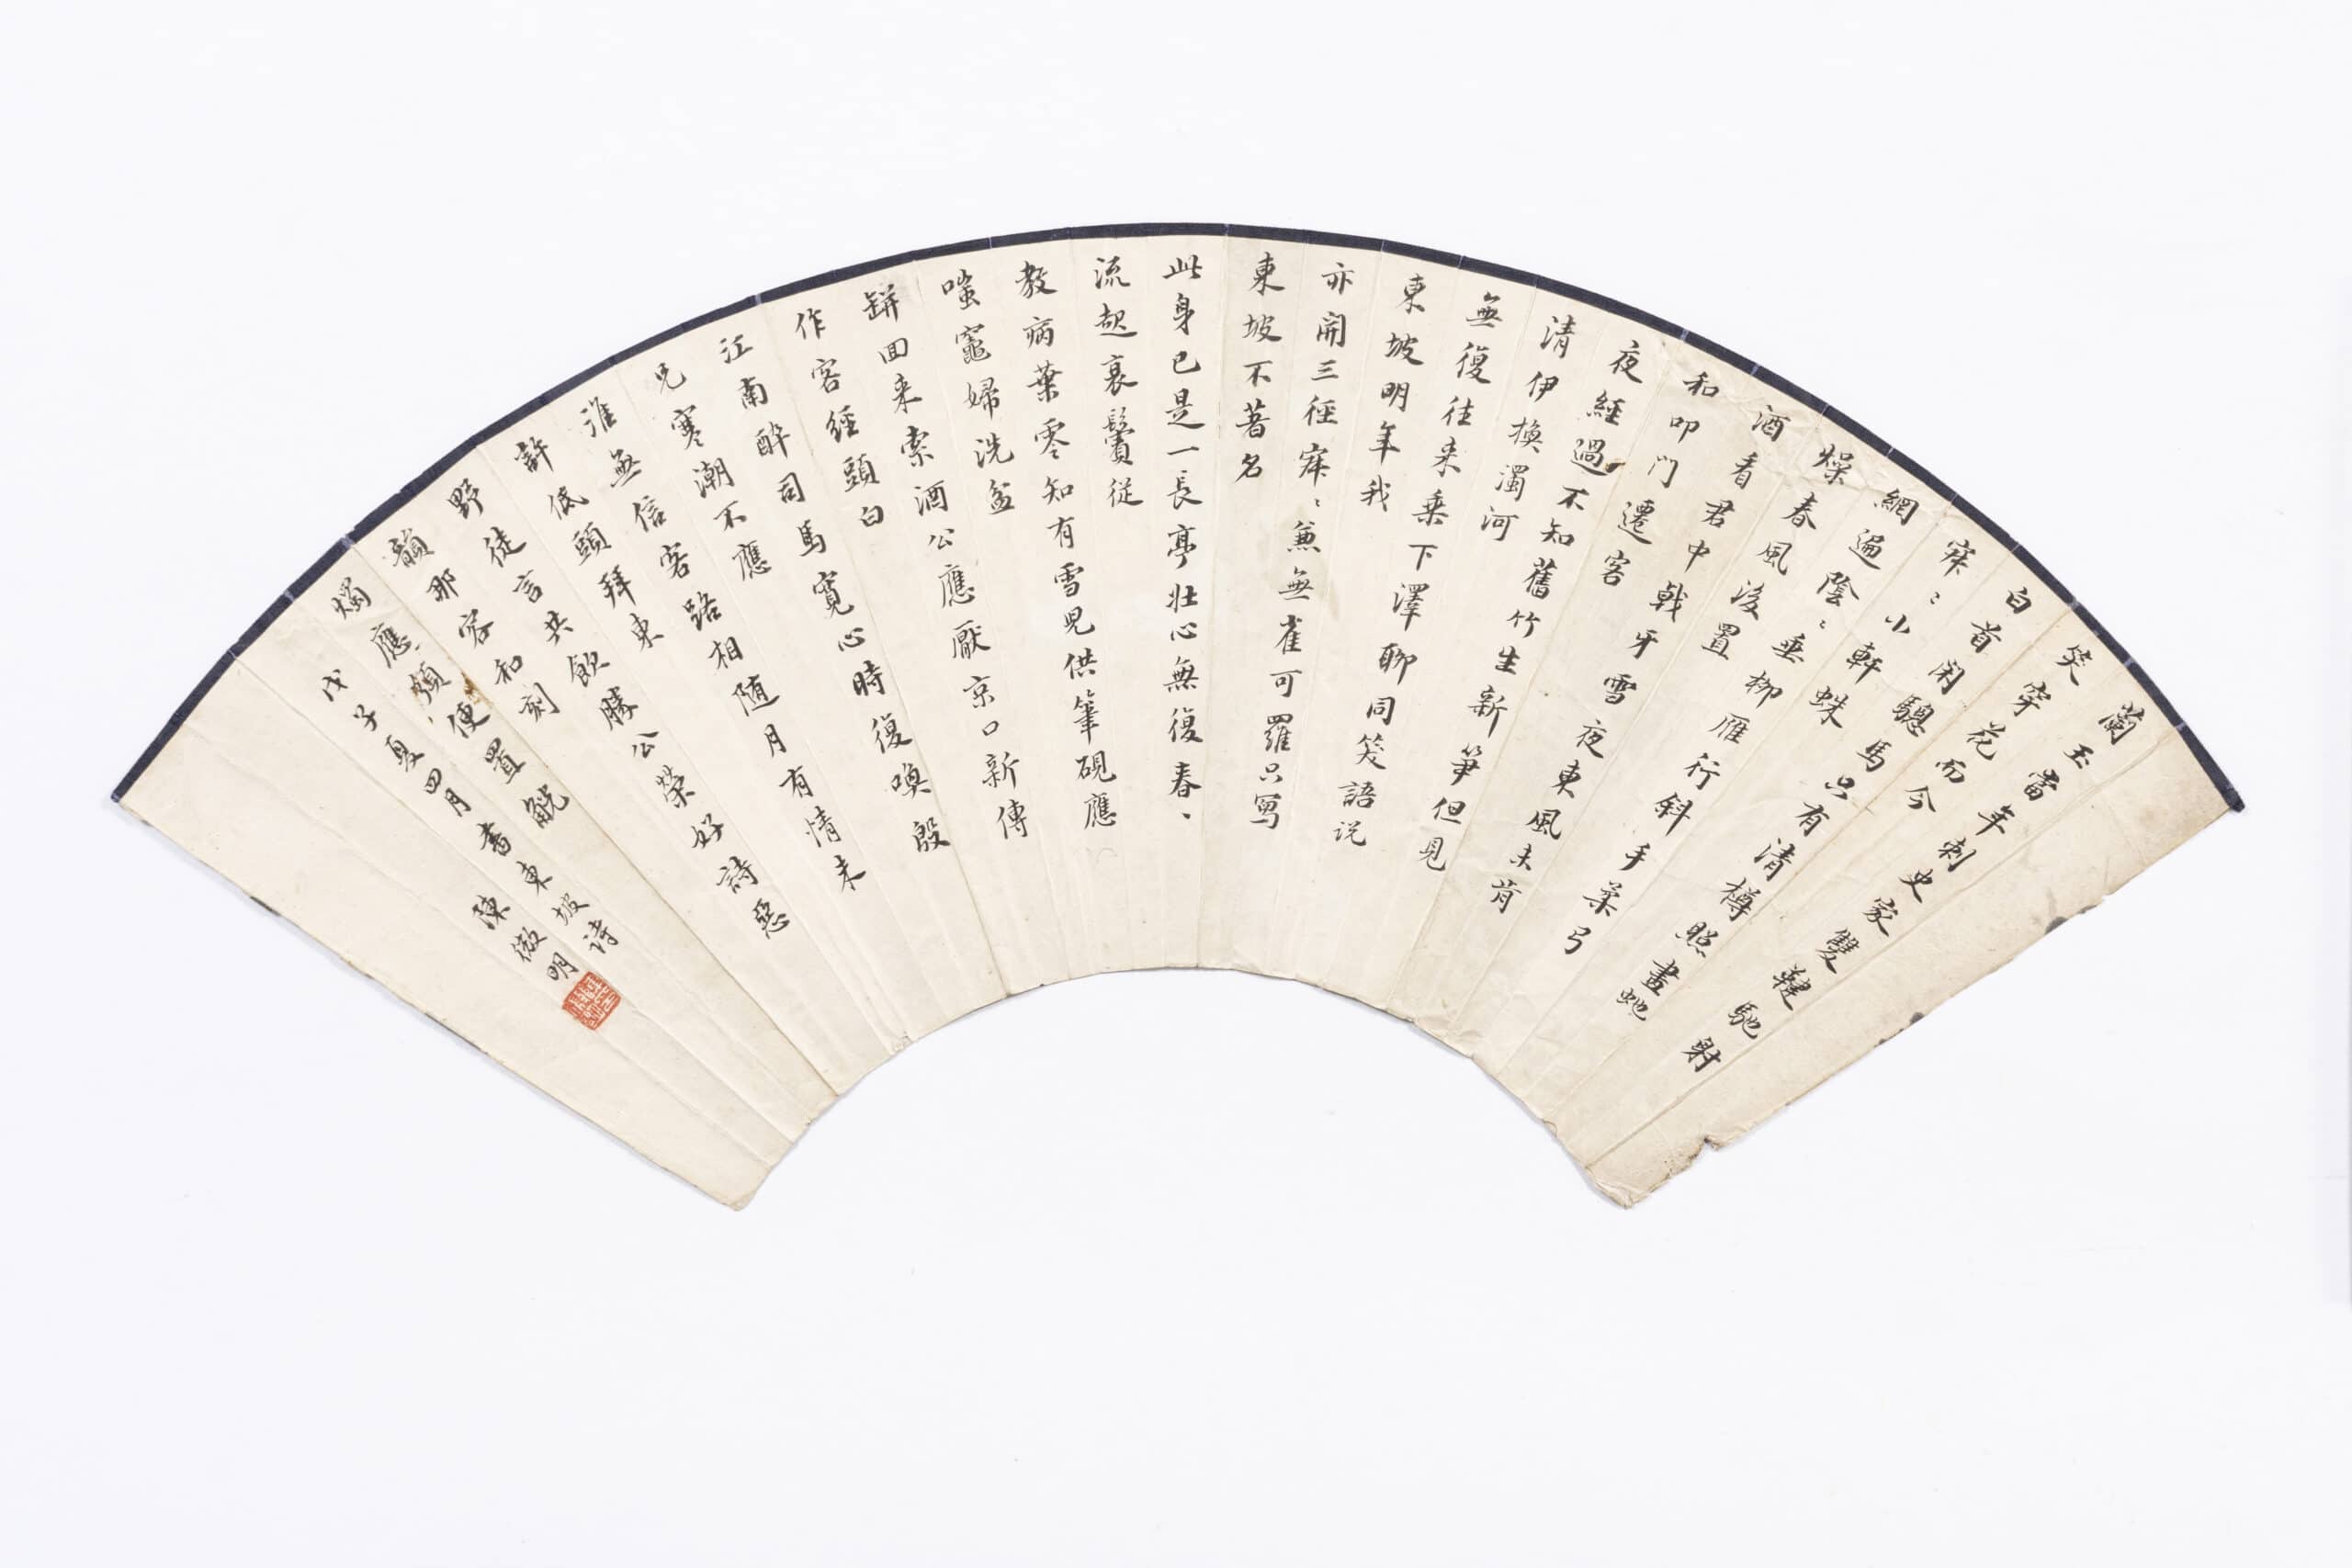 蘭玉當年刺史家雙鞬馳射
笑穿花而今
白首閑驄馬只有清樽照畫虵
寂〻小軒蛛
網遍陰〻垂柳雁行斜手柔弓
燥春風後置
酒看君中戟牙雪夜東風未肯
和叩門遷客
夜經過不知舊竹生新笋但見
清伊換濁河
無復往来乗下澤聊同笑語說
東坡明年我
亦開三徑寂〻兼無雀可羅只寫
東坡不著名
此身已是一長亭壯心無復春、
流起衰鬢從
教病葉零知有雪兒供筆硯應
嗤竈婦洗盆
缾回来索酒公應厭京口新傳
作客經頭白
江南酔司馬寬心時復喚殷
兄寒潮不應
淮無信客路相随月有情未
許低頭拜東
野徒言共飲勝公榮好詩惡
韻那容和刻
燭應須便置觥東坡詩
戊子夏四月書 陳微明